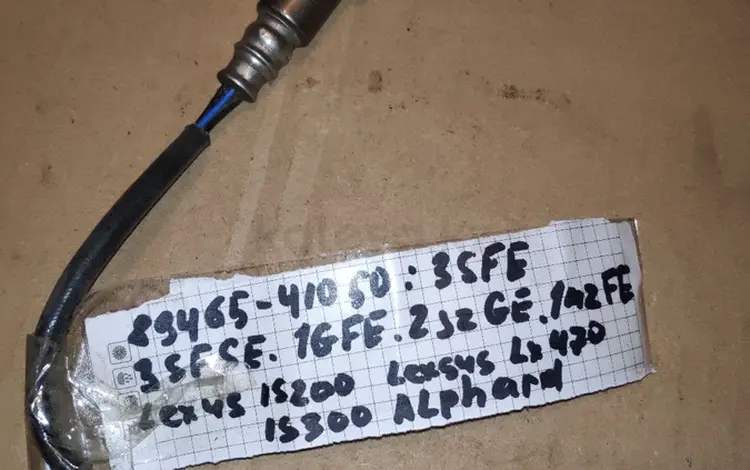 89465-41050: 3SFE
3SFSE. 1GFE. 2JZ GE. 1MZFE
Lexus IS200 Lexsus Lx470
IS300 ALphard